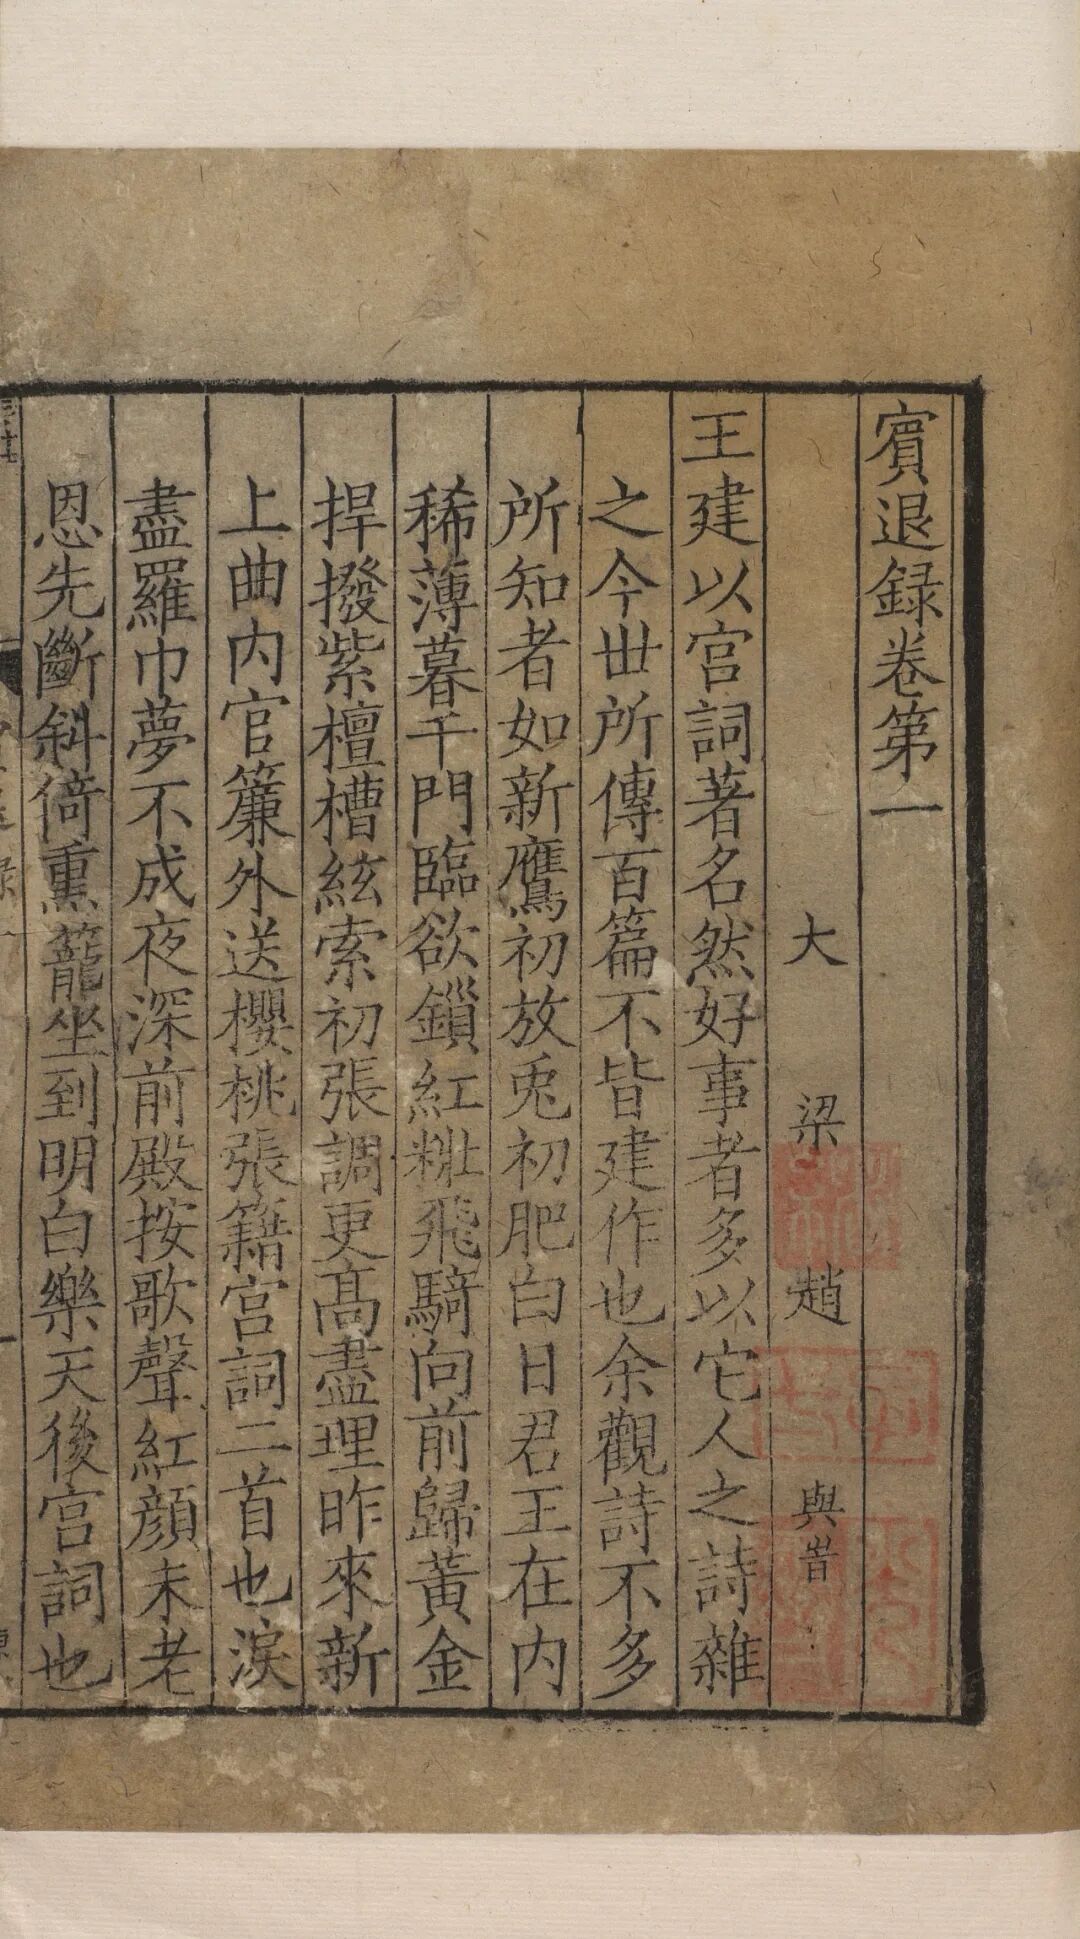 賔退録卷第一
大梁趙與旹
王建以宫詞著名然好事者多以它人之詩雜
之今世所傳百篇不皆建作也余觀詩不多
所知者如新鷹初放兎初肥白日君王在内
稀薄暮千門臨欲鎻紅粧飛騎向前歸黄金
捍撥紫檀槽絃索初張調更髙盡理昨來新
上曲内官簾外送櫻桃張籍宫詞二首也淚
盡羅巾夢不成夜深前殿按歌聲紅顔未老
恩先斷斜倚熏籠坐到明白樂天後宫詞也